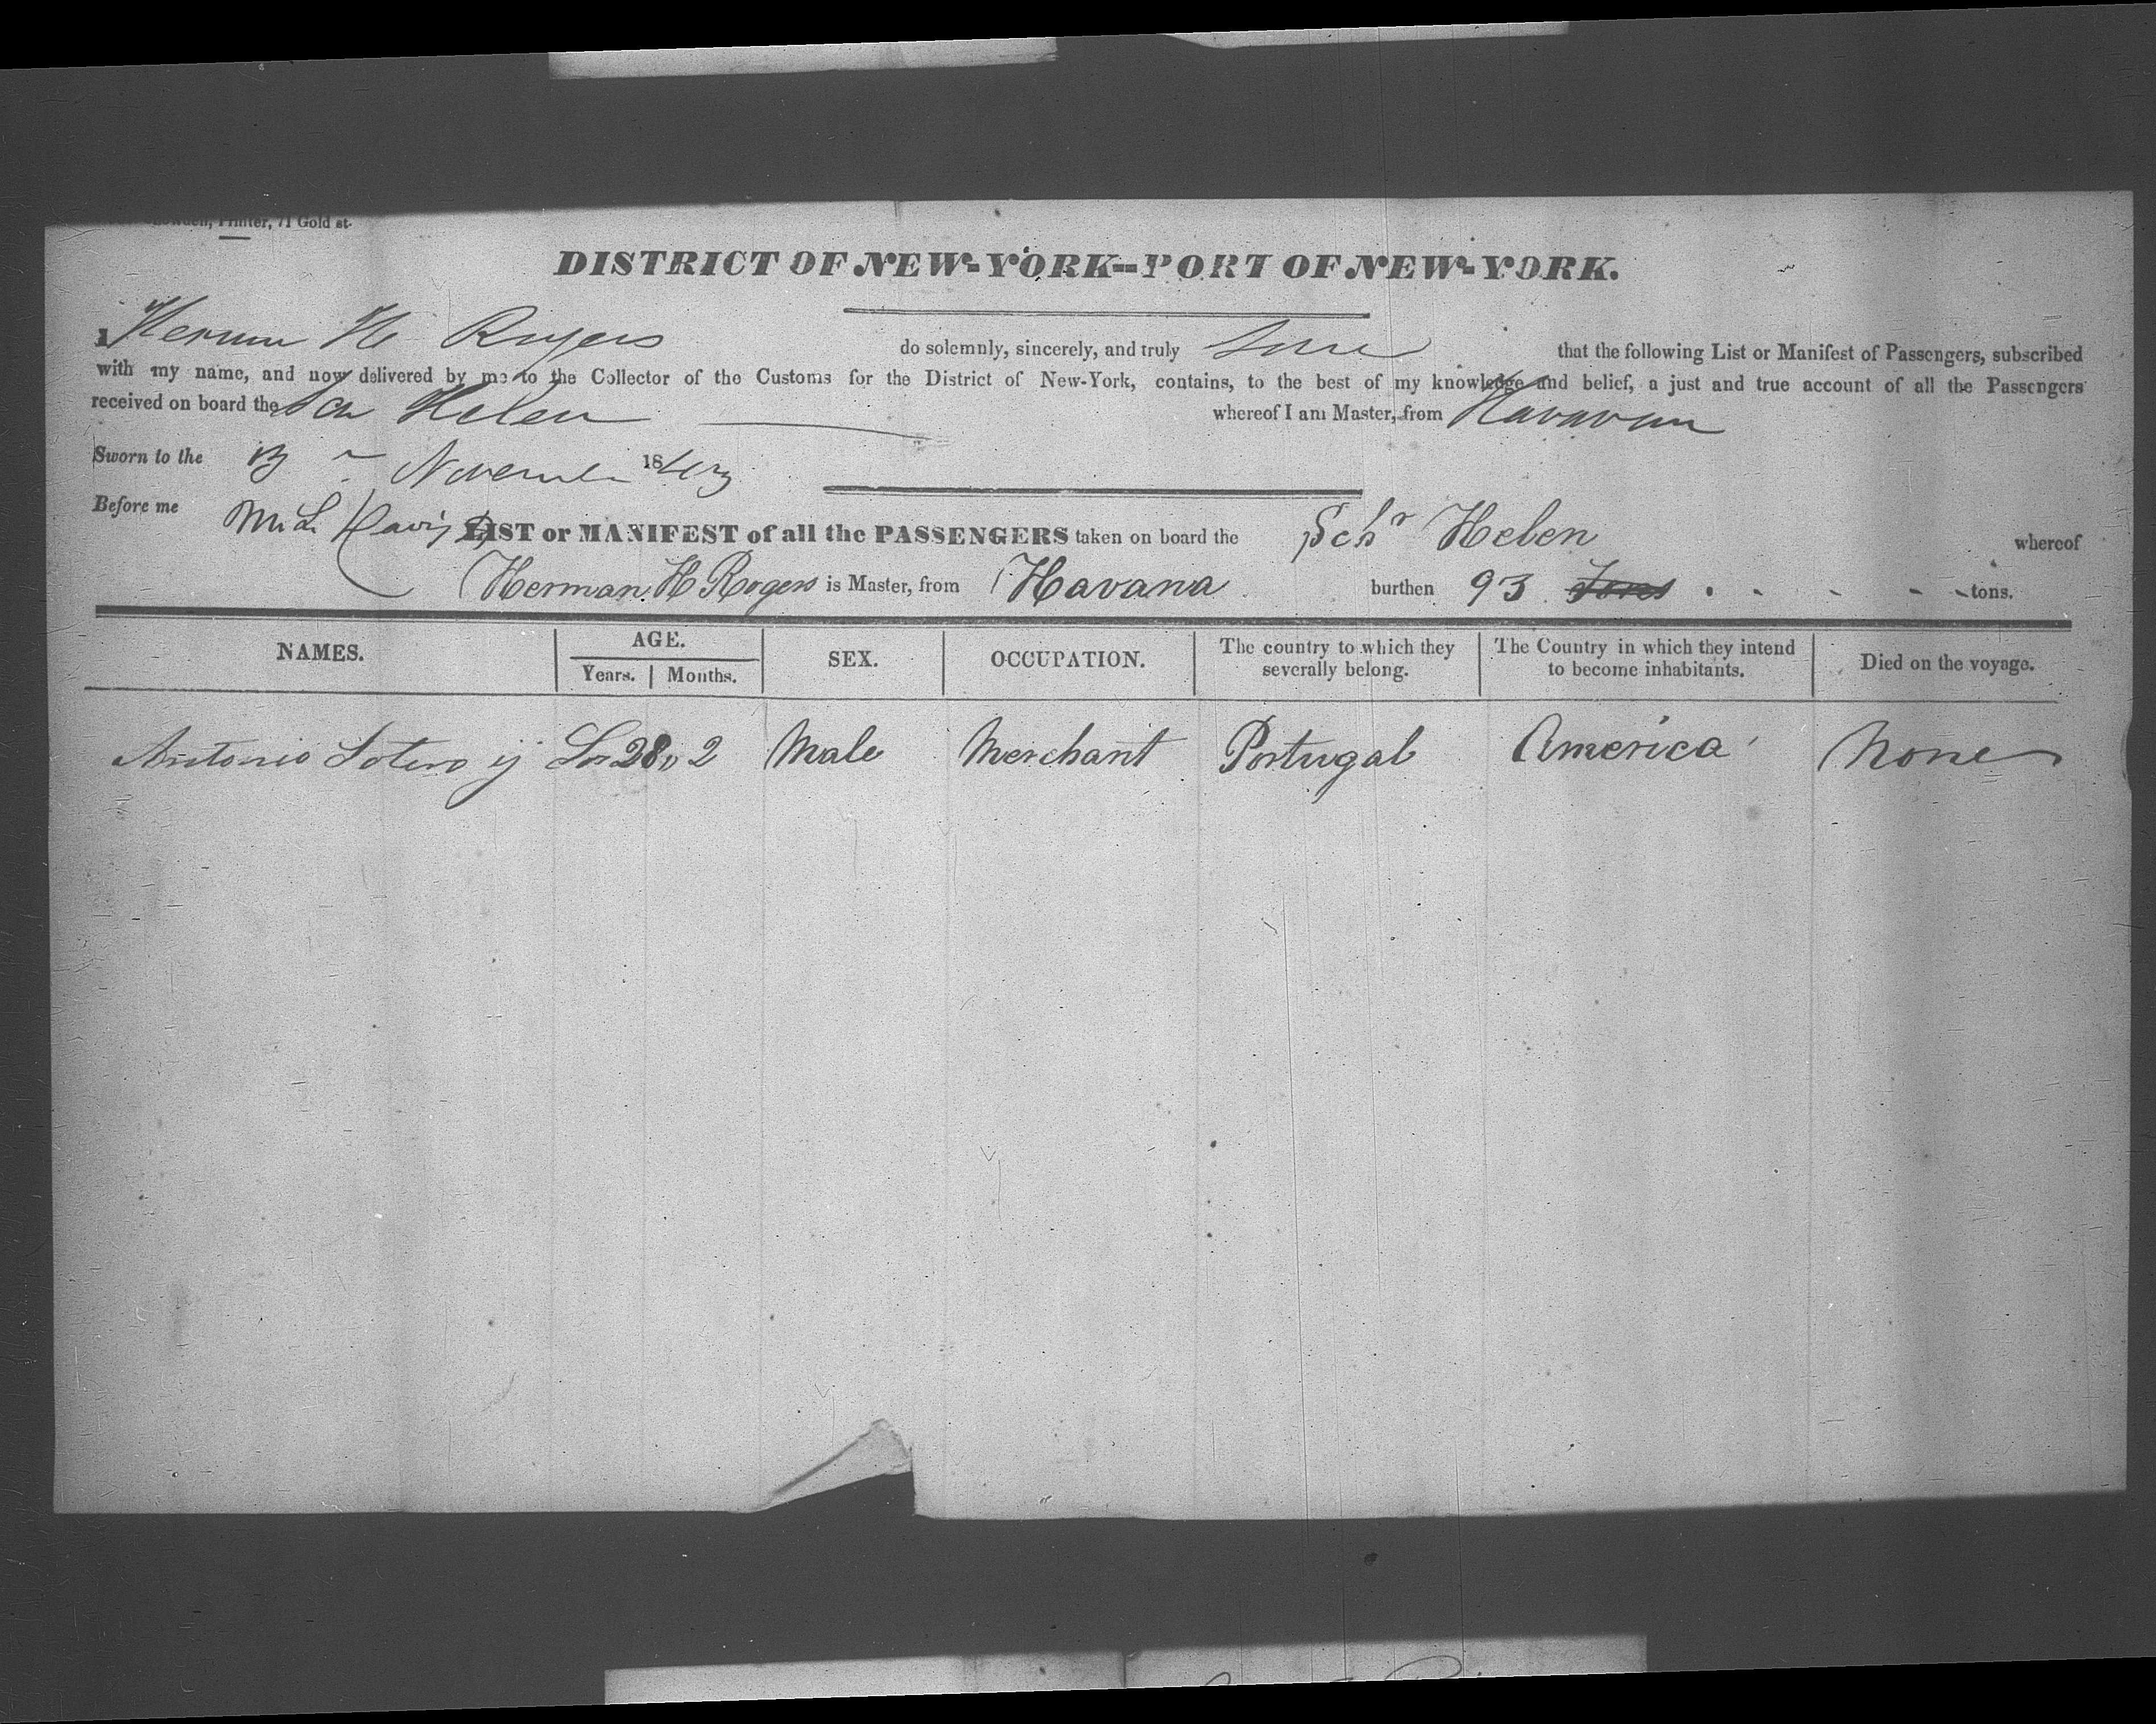 Printer, 71 Gold st.
DISTRICT OF NEW-YORK--PORT OF NEW-YORK.
I Herman H Rogers do solemnly, sincerely, and truly that the following List or Manifest of Passengers, subscribed
with my name, and now delivered by me to the Collector of the Customs for the District of New-York, contains, to the best of my knowledge and belief, a just and true account of all the Passengers
received on board the Sch Helen whereof I am Master, from Havana
Sworn to the November 18
Before me M. L. Davis
LIST or MANIFEST of all the PASSENGERS taken on board the Schr Helen whereof
Herman H Rogers is Master, from Havana burthen 93 Tons tons.
NAMES. AGE. Years. Months. SEX. OCCUPATION. The country to which they severally belong. The Country in which they intend to become inhabitants. Died on the voyage.
Antonio Sotero 28 2 Male Merchant Portugal America None